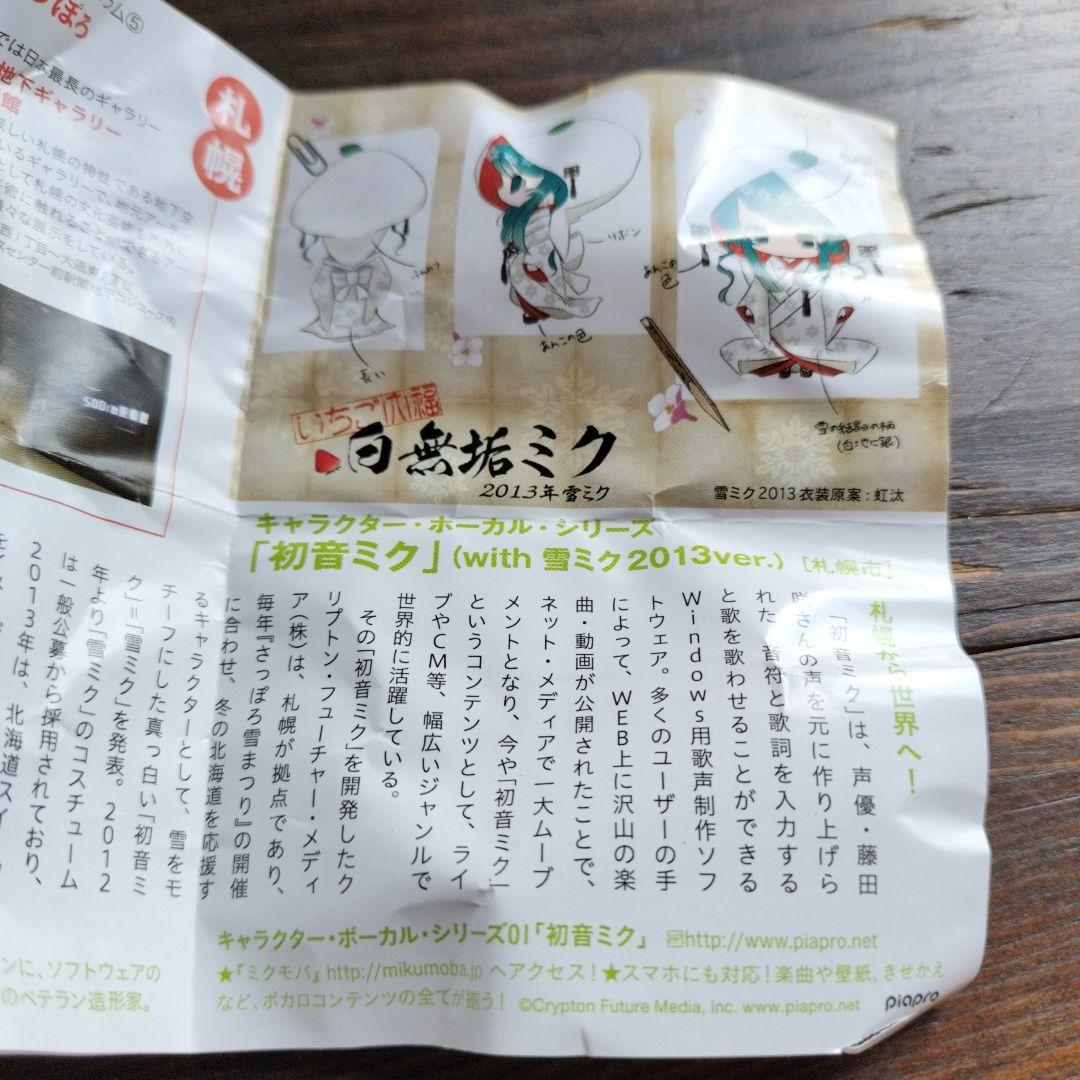 ぽろ
では日本最長のギャラリー
地下ギャラリー
館
札幌
ふんわり
長い
リボン
あんこの色
あんこの色
雪の結晶の柄
(白地に銀)
いちご大福
白無垢ミク
2013年雪ミク
雪ミク2013衣装原案:虹汰
キャラクター・ボーカル・シリーズ
「初音ミク」(with 雪ミク2013ver.) [札幌市]
札幌から世界へ!
「初音ミク」は、声優・藤田
咲さんの声を元に作り上げら
れた、音符と歌詞を入力する
と歌を歌わせることができる
Windows用歌声制作ソフ
トウェア。多くのユーザーの手
によって、WEB上に沢山の楽
曲・動画が公開されたことで、
ネット・メディアで一大ムーブ
メントとなり、今や「初音ミク」
というコンテンツとして、ライ
ブやCM等、幅広いジャンルで
世界的に活躍している。
その「初音ミク」を開発したク
リプトン・フューチャー・メディ
ア(株)は、札幌が拠点であり、
毎年『さっぽろ雪まつり』の開催
に合わせ、冬の北海道を応援す
るキャラクターとして、雪をモ
チーフにした真っ白い「初音ミ
ク」=「雪ミク」を発表。2012
年より「雪ミク」のコスチューム
は一般公募から採用されており、
2013年は、北海道スイー
キャラクター・ボーカル・シリーズ01「初音ミク」 http://www.piapro.net
★『ミクモバ』http://mikumoba.jp へアクセス!★スマホにも対応!楽曲や壁紙、きせかえ
など、ボカロコンテンツの全てが揃う! ©Crypton Future Media, Inc. www.piapro.net
piapro
ンに、ソフトウェアの
のベテラン造形家。